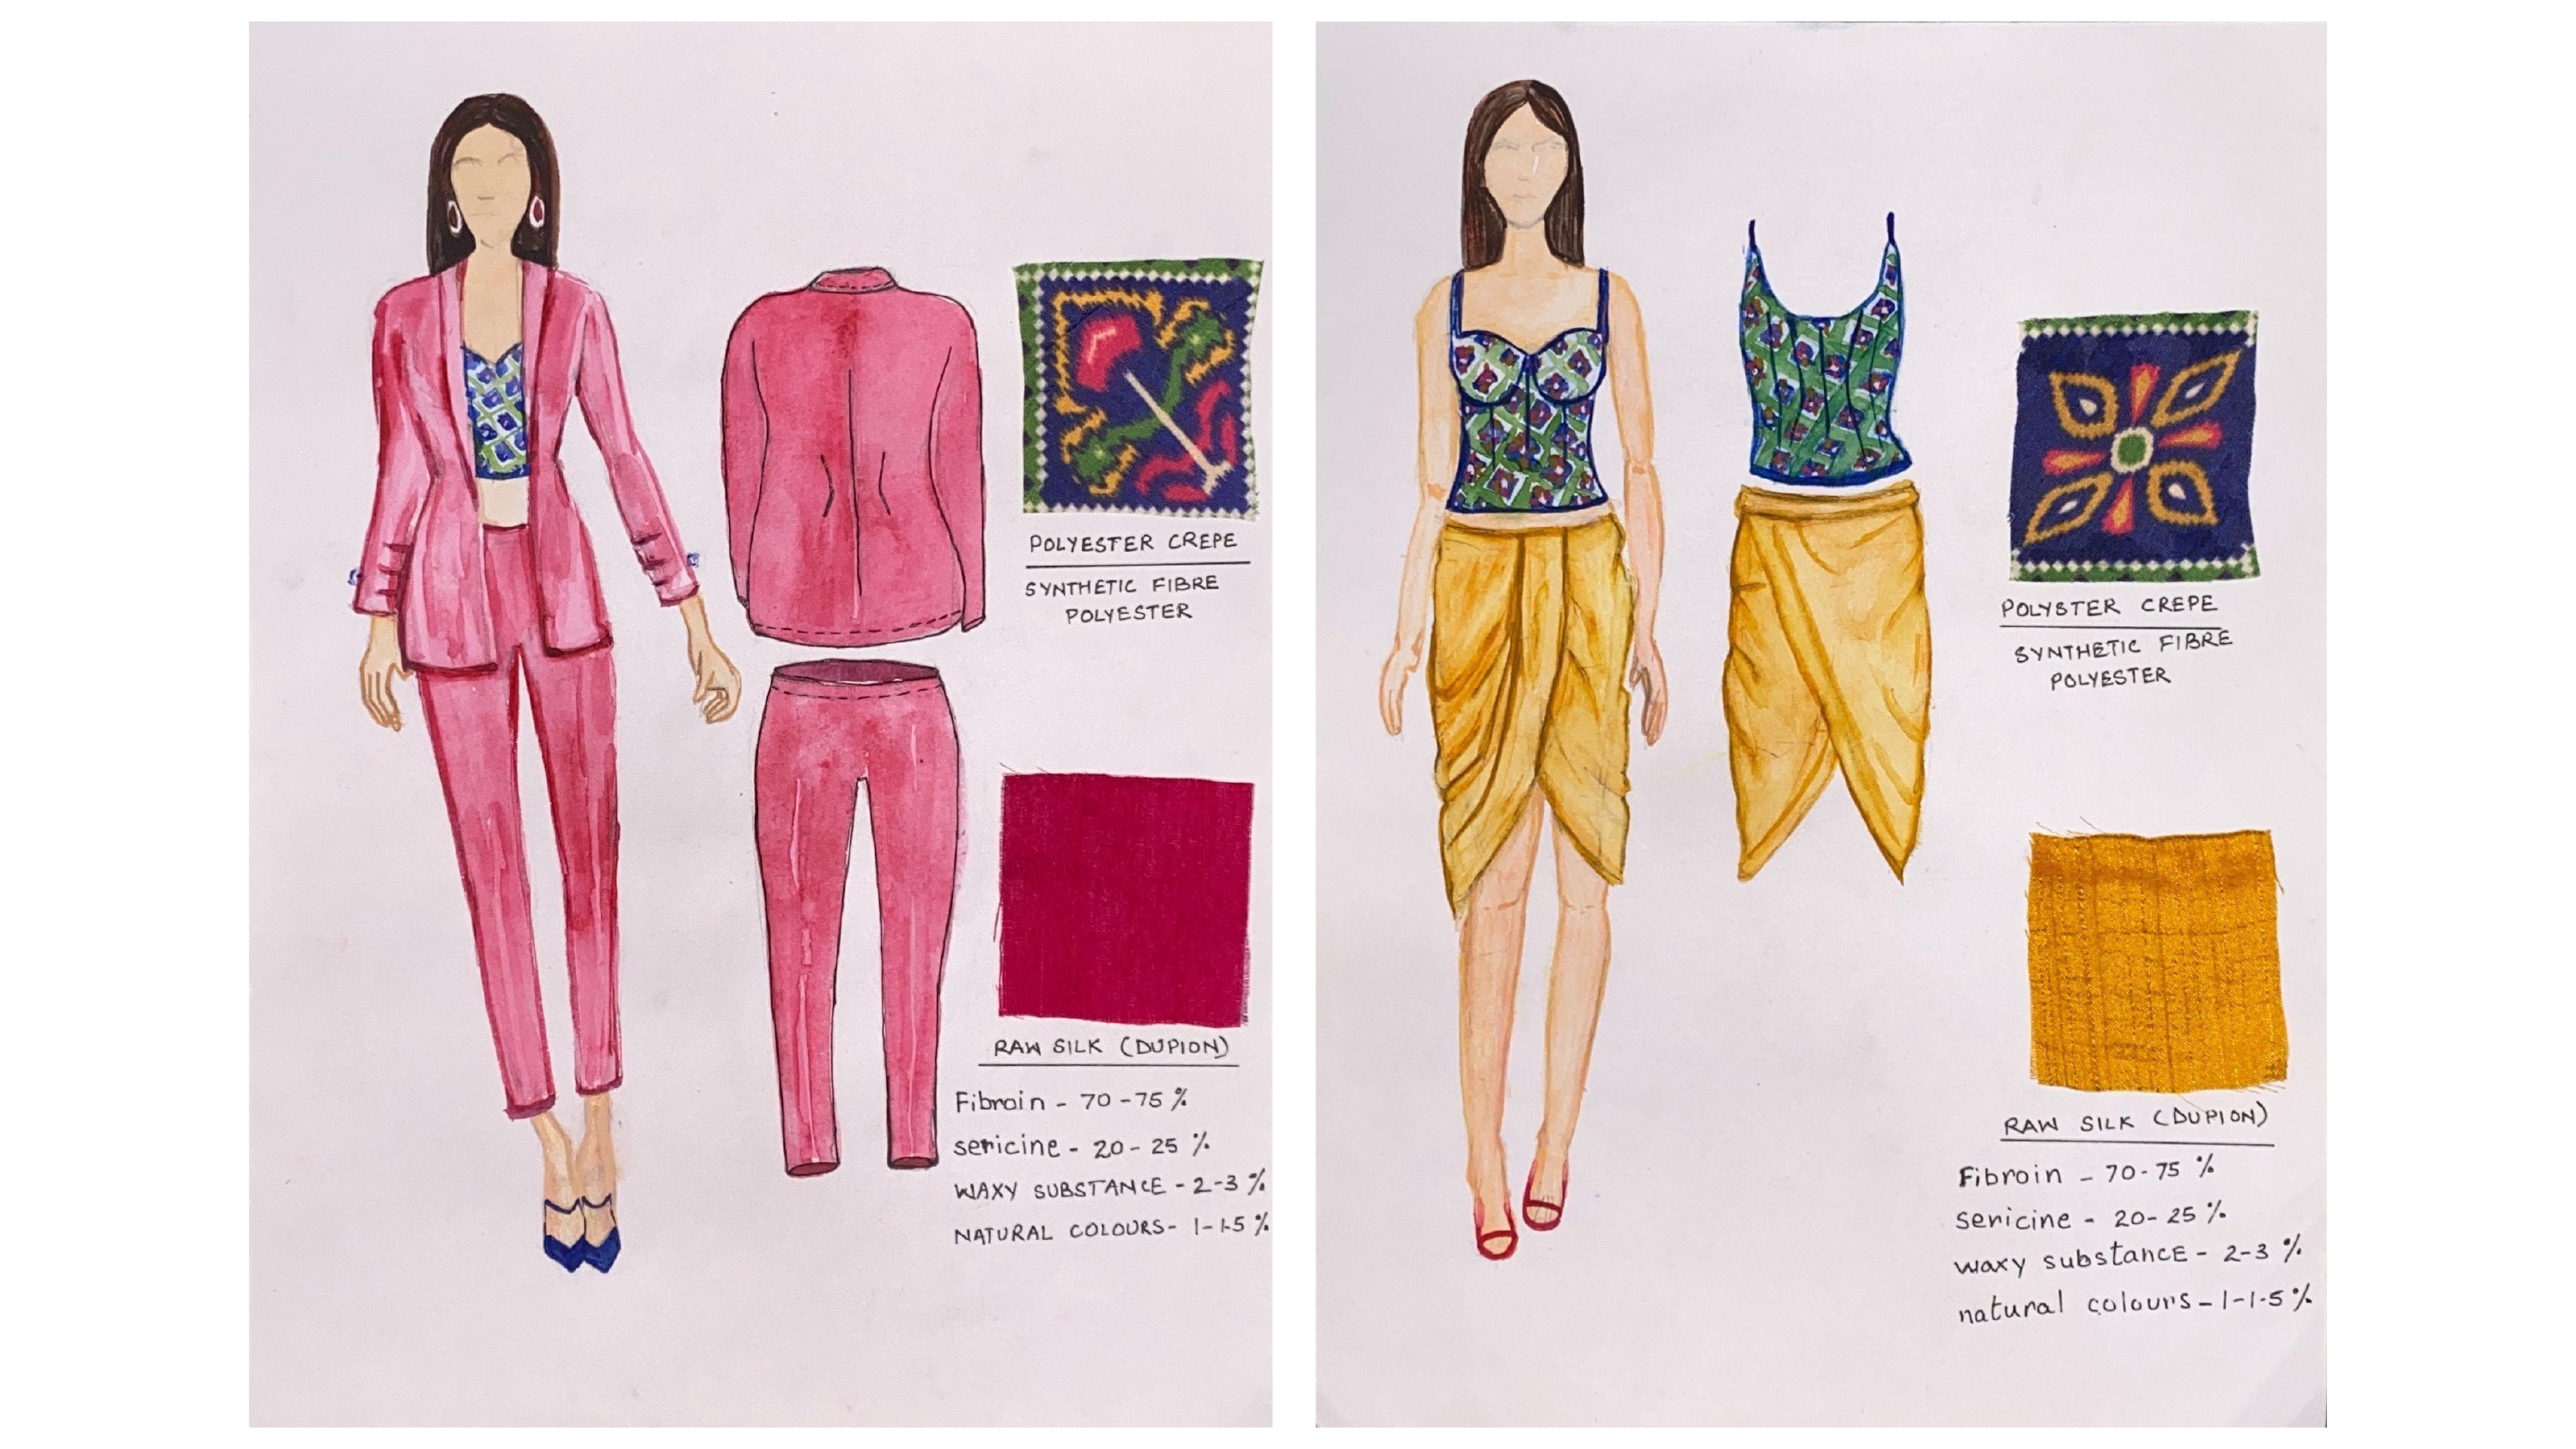 POLYESTER CREPE
SYNTHETIC FIBRE
POLYESTER
RAW SILK (DUPION)
Fibroin - 70-75 %
sericine - 20-25 %
WAXY SUBSTANCE - 2-3 %
NATURAL COLOURS - 1-1.5 %
POLYSTER CREPE
SYNTHETIC FIBRE
POLYESTER
RAW SILK (DUPION)
Fibroin - 70-75 %
sericine - 20-25 %
waxy substancE - 2-3 %
natural colours - 1-1.5 %